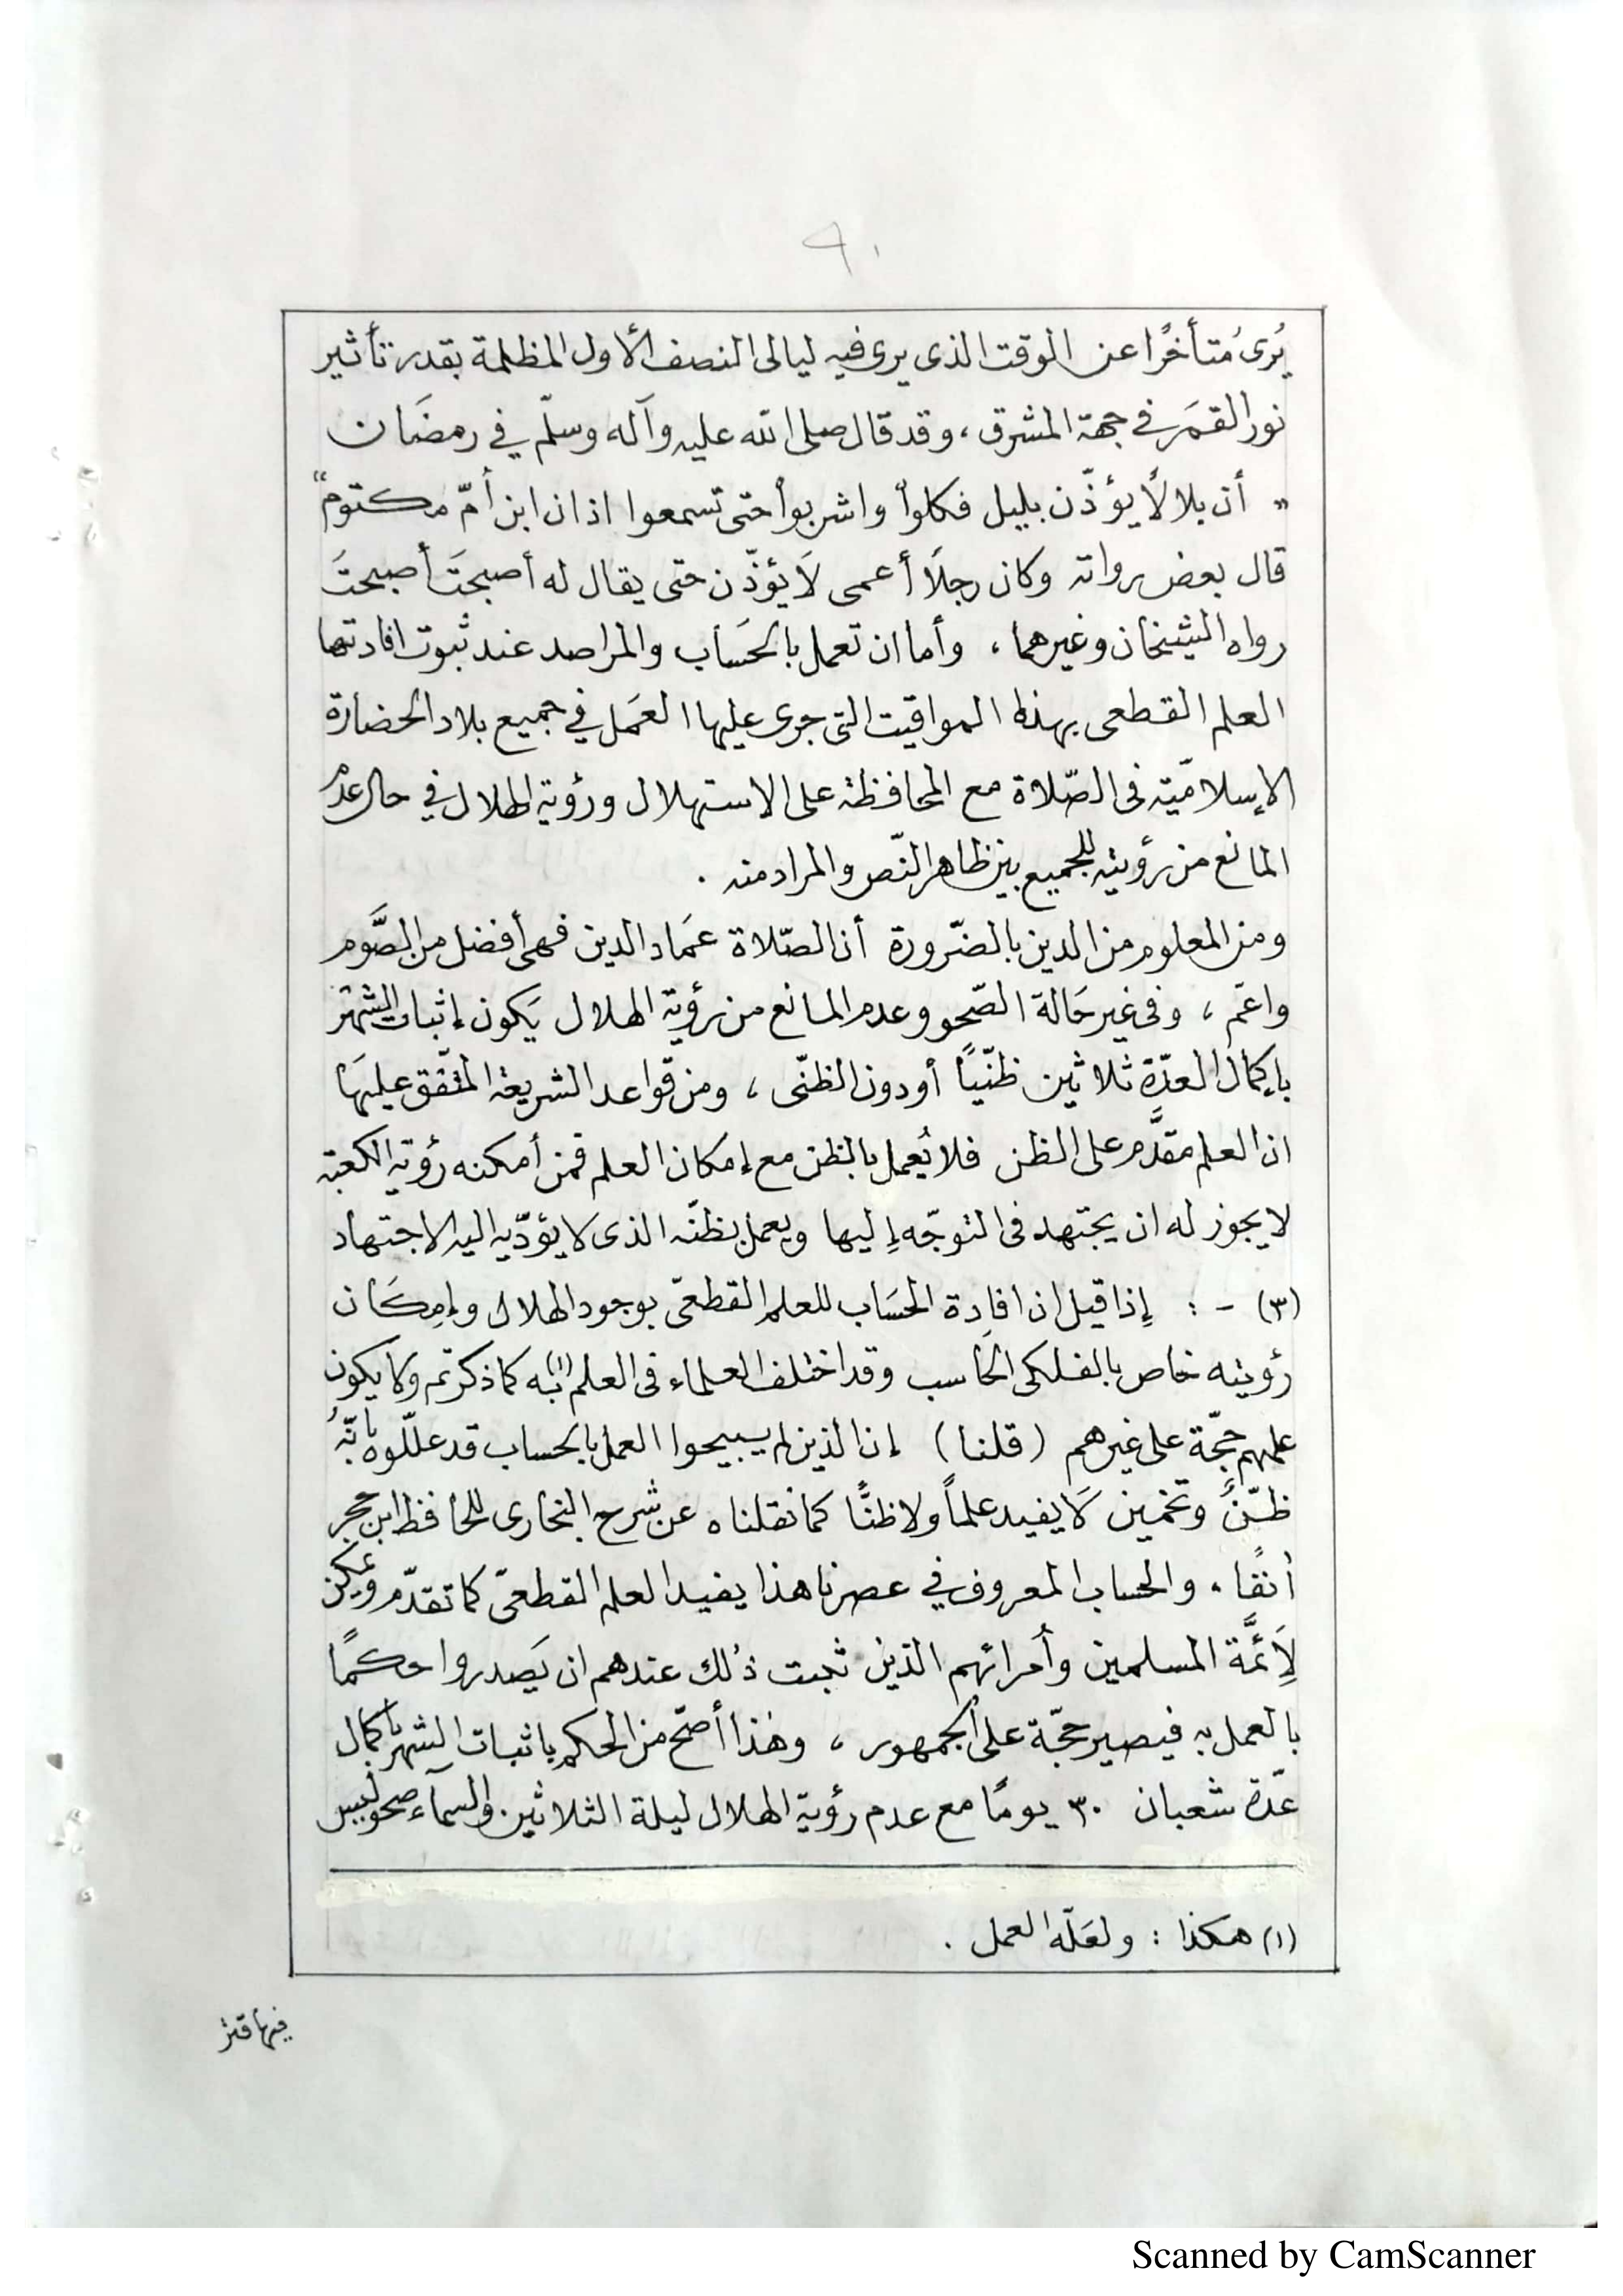 ٩٠
يُرىٰ مُتأخرًا عن الوقت الذى يرى فيه ليالى النصف الأول المظلمة بقدر تأثير
نور القمَر في جهة المشرق ، وقد قال صلى الله عليه وآله وسلّم في رمضَان
" أن بلالاً يؤذّن بليل فكلواْ واشربواْ حتى تسمعوا اذان ابن أمّ مكتوم "
قال بعض رواته وكان رجلاً أعمى لاَ يؤذّن حتى يقال له أصبحتَ أصبحتَ
رواه الشيخان وغيرهما ، وأما ان تعمل بالحَساب والمراصد عند ثبوت افادتها
العلم القطعى بهذه المواقيت التى جرى عليها العَمل في جميع بلاد الحضارة
الإسلاميّة فى الصّلاة مع المحافظة على الاستهلال ورؤية الهلال في حال عدم
المانع من رؤيته للجميع بين ظاهر النّص والمراد منه .
ومن المعلوم من الدين بالضّرورة أن الصّلاة عمَاد الدين فهى أفضل من الصَّوم
واعّم ، وفى غير حَالة الصّحو وعدم المانع من رؤية الهلال يَكون إثبات الشهر
بإكمال العدّة ثلاثين ظنّيًا أو دون الظنّى ، ومن قواعد الشريعة المتّفق عليهَا
ان العلم مقدَّم على الظن فلا يُعمل بالظن مع إمكان العلم فمن أمكنه رؤية الكعبة
لا يجوز له ان يجتهد فى التوجّه إليها ويعمل بظنّه الذى لا يؤدّيه اليه الاجتهاد
(٣) - : إذا قيل ان افادة الحسَاب للعلم القطعىّ بوجود الهلال وإمكَان
رؤيته خاص بالفلكى الحَاسب وقد اختلف العلماء فى العلم (١) به كما ذكرتم ولا يكون
علمهم حجّة على غيرهم (قلنا) إن الذين لم يبيحوا العمل بالحساب قد علّلوه بأنّهُ
ظنّ وتخمين لاَ يفيد علماً ولا ظنًّا كما نقلناه عن شرح البخارى للحافظ ابن حجر
أنفًا ، والحساب المعروف في عصرنا هذا يفيد العلم القطعىّ كما تقدّم ويمكن
لأَئمَّة المسلمين وأمرائهم الذين ثبت ذلك عندهم ان يَصدروا حكمًا
بالعمل به فيصير حجّة على الجمهور ، وهٰذا أصحّ من الحكم باثبات الشهر بإكمال
عدّة شعبان ٣٠ يومًا مع عدم رؤية الهلال ليلة الثلاثين والسمآء صحو ليس
(١) هكذا : ولعَلّه العمل .
فيها قتر
Scanned by CamScanner